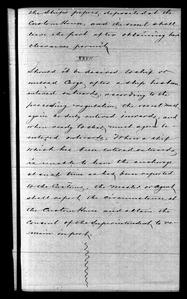 the Ships papers, deposited at the
Custom House, and she must shall
leave the port after obtaining her
clearance permit.
XXVI
Should it be desired to ship or
unload Cargo after a ship has been
entered outwards, according to the
preceding regulation, she must
again be duly entered inwards, and
when ready to start, must again be
entered outwards. If a ship
which has been entered outwards,
is unable to leave the anchorage
at such time as had been reported
to the Customs, the Master or Agent
shall report the circumstances at
the Custom House and obtain the
Consent of the Superintendent, to re-
main in port.